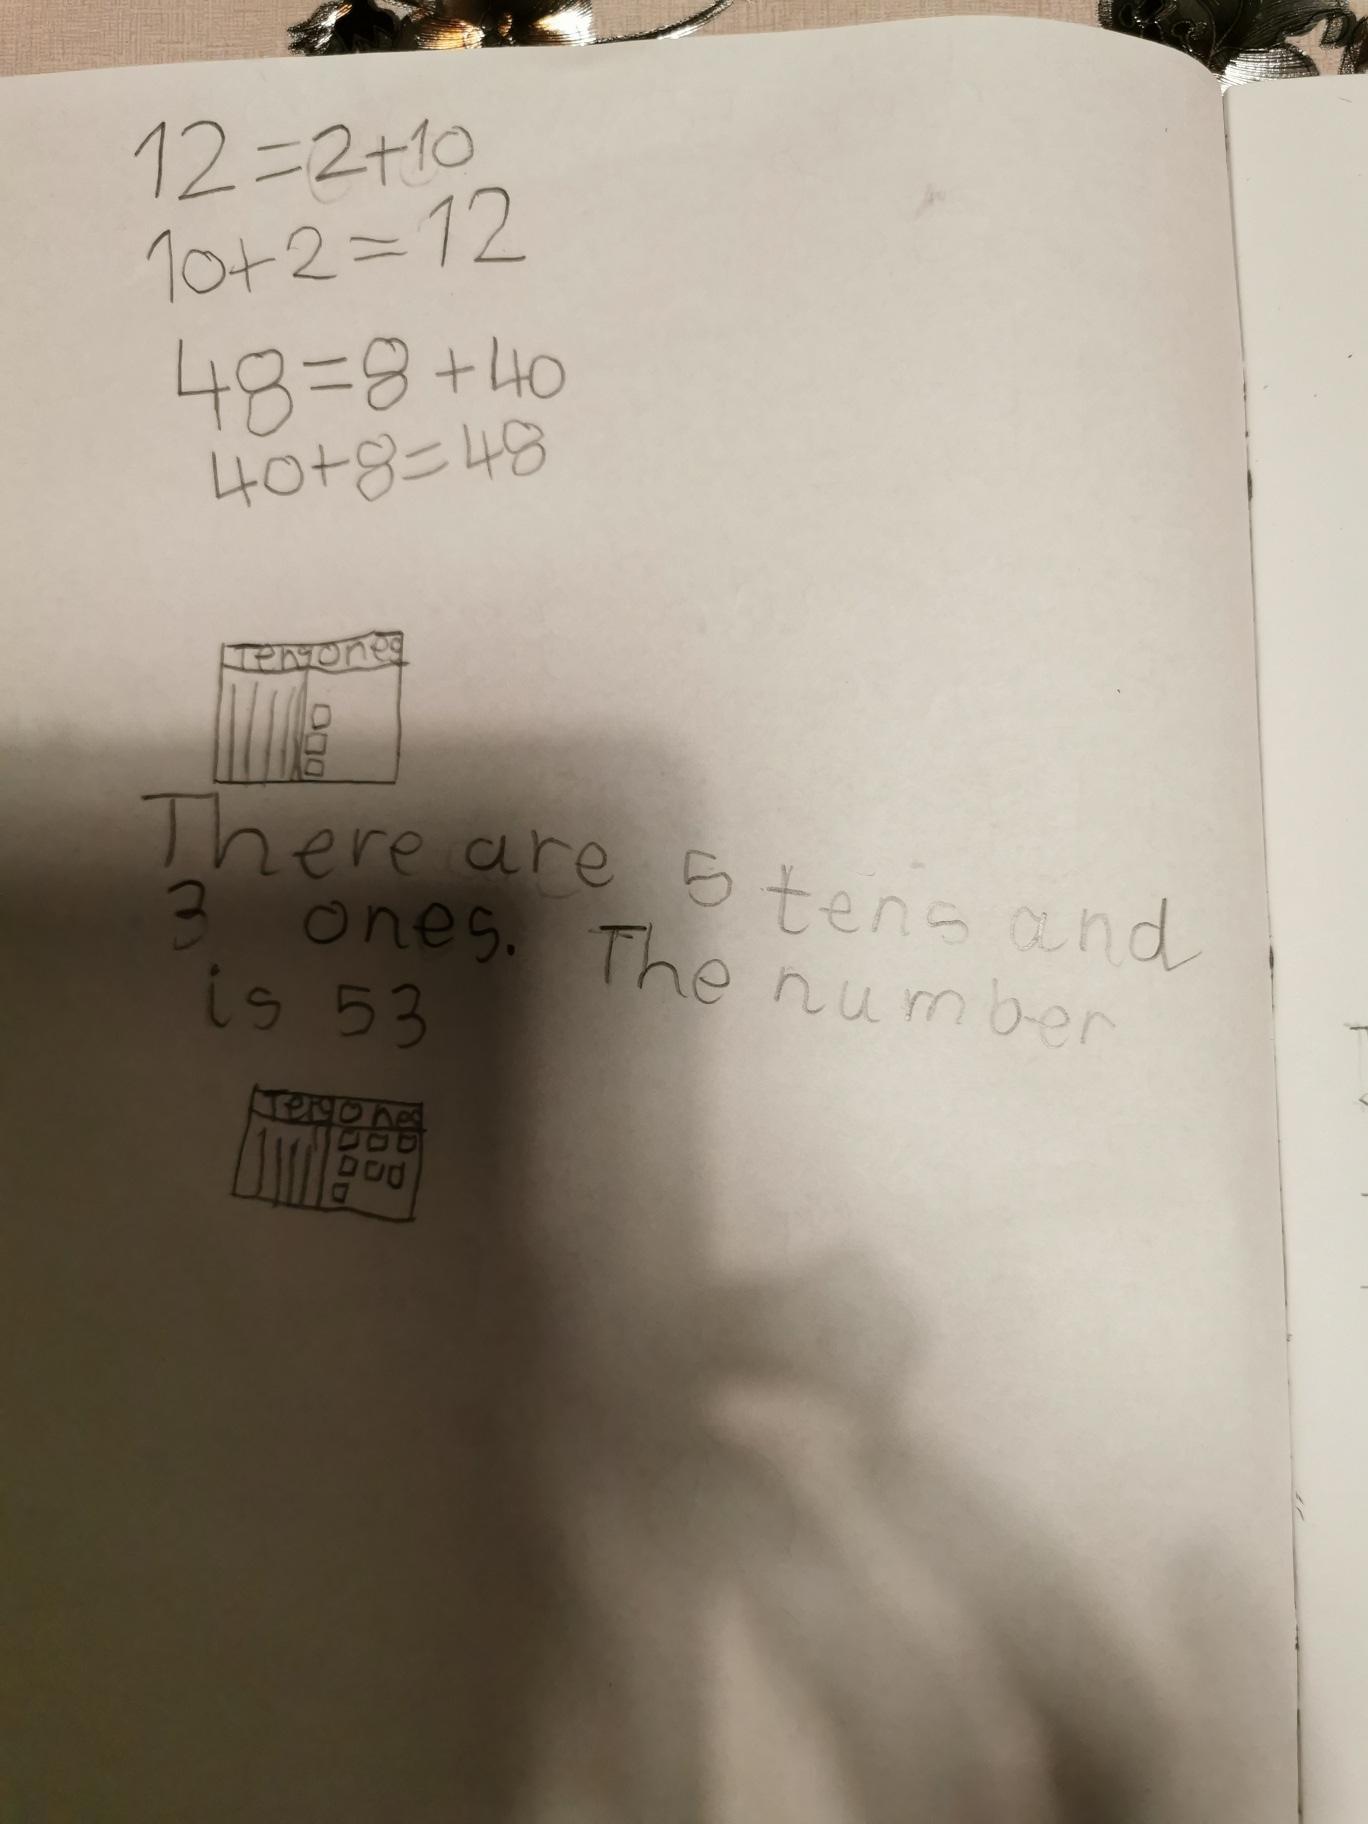 12=2+10
10+2=12
48=8+40
40+8=48
Tens ones
There are 5 tens and
3 ones. The number
is 53
Tens ones